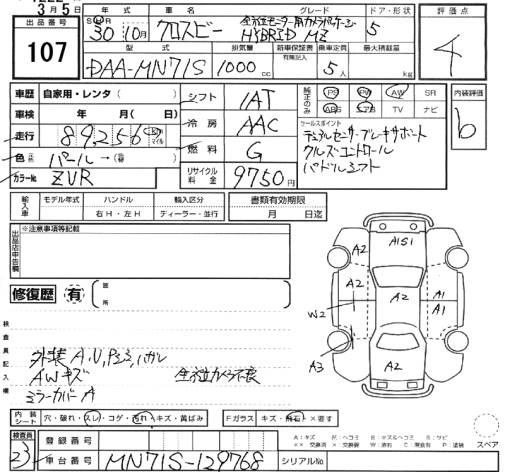 3月5日
年式 車名 グレード ドア・形状 評価点
出品番号 H/R 30年10月 クロスビー 全方位モニター用カメラパッケージ HYBRID MZ 5
107 4
型式 排気量 新車保証書 乗車定員 最大積載量
有無記入
DAA-MN71S 1000cc 5人 kg
車歴 自家用・レンタ( ) シフト IAT 純正のみ PS PW AW SR 内装評価
車検 年 月(日) 冷房 AAC ABS エアB TV ナビ b
走行 89,256 km マイル 燃料 G セールスポイント
デュアルセンサーブレーキサポート
クルーズコントロール
パドルシフト
色 パール→( )
カラーNo ZVR リサイクル料金 9750円
輸入車 モデル年式 ハンドル 輸入区分 書類有効期限
右H・左H ディーラー・並行 月 日迄
出品店申告欄 ※注意事項等記載
修復歴 有 箇所
A2 A1S1
A2 A2 A1
W2 A1
A3 A2
検査員記入欄
外装A,U,Pスミ,ハガレ
AWキズ 全方位カメラ不良
ミラーカバーA
内装シート 穴・破れ・スレ・コゲ・汚れ・キズ・黄ばみ Fガラス キズ・飛石・×要す
スペア
検査員 23 登録番号
A:キズ 凹:ヘコミ B:キズ&ヘコミ S:サビ
×× 交換済 × 交換要 W 波有 C 腐食有 P 塗装
車台番号 MN71S-129768 シリアルNo